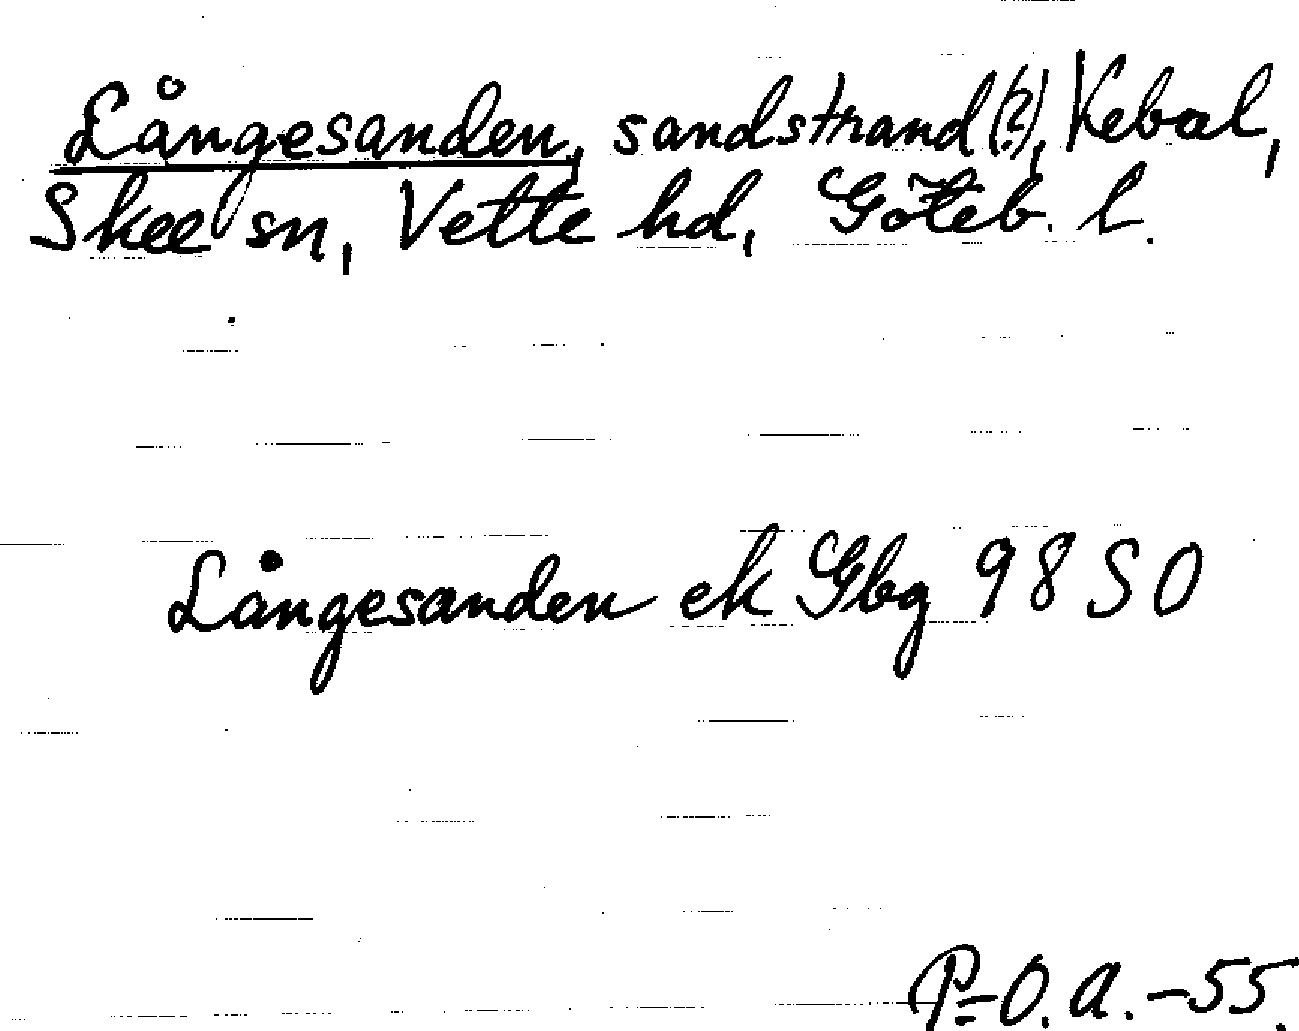 Långesanden, sandstrand(?), Kebal,
Skee sn, Vette hd, Göteb. l.
Långesanden ek Gbg 98 SO
P=O.A.-55.